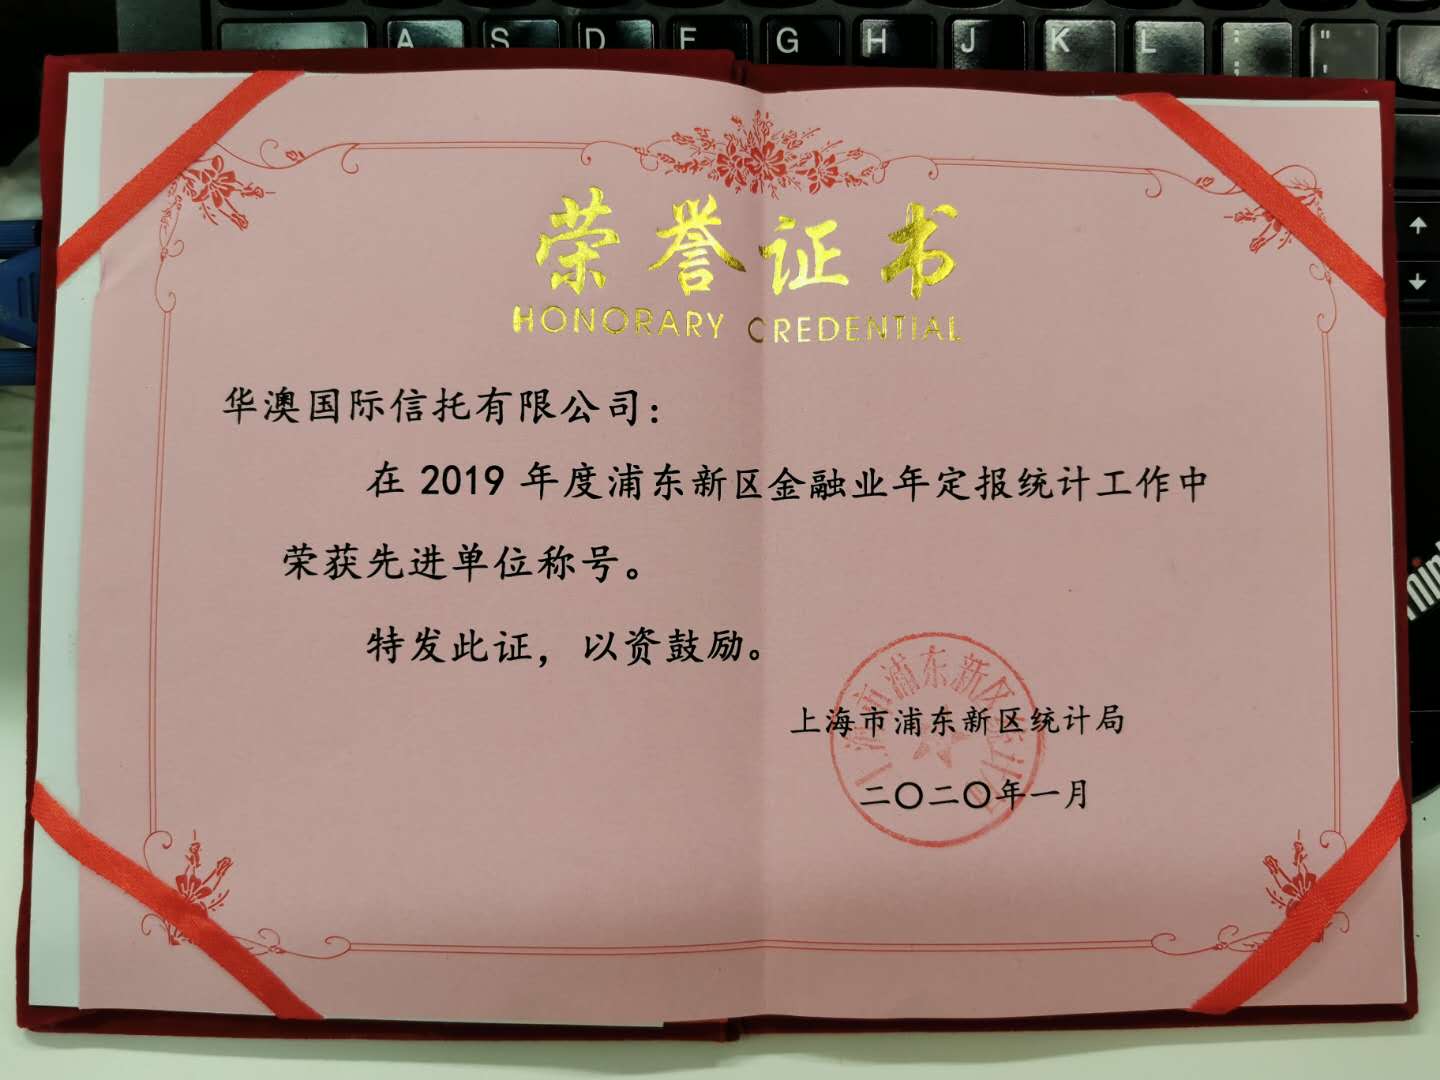 A S D F G H J K L : ; " '
荣誉证书
HONORARY CREDENTIAL
华澳国际信托有限公司：
在 2019 年度浦东新区金融业年定报统计工作中
荣获先进单位称号。
特发此证，以资鼓励。
上海市浦东新区统计局
上海市浦东新区统计局
二〇二〇年一月